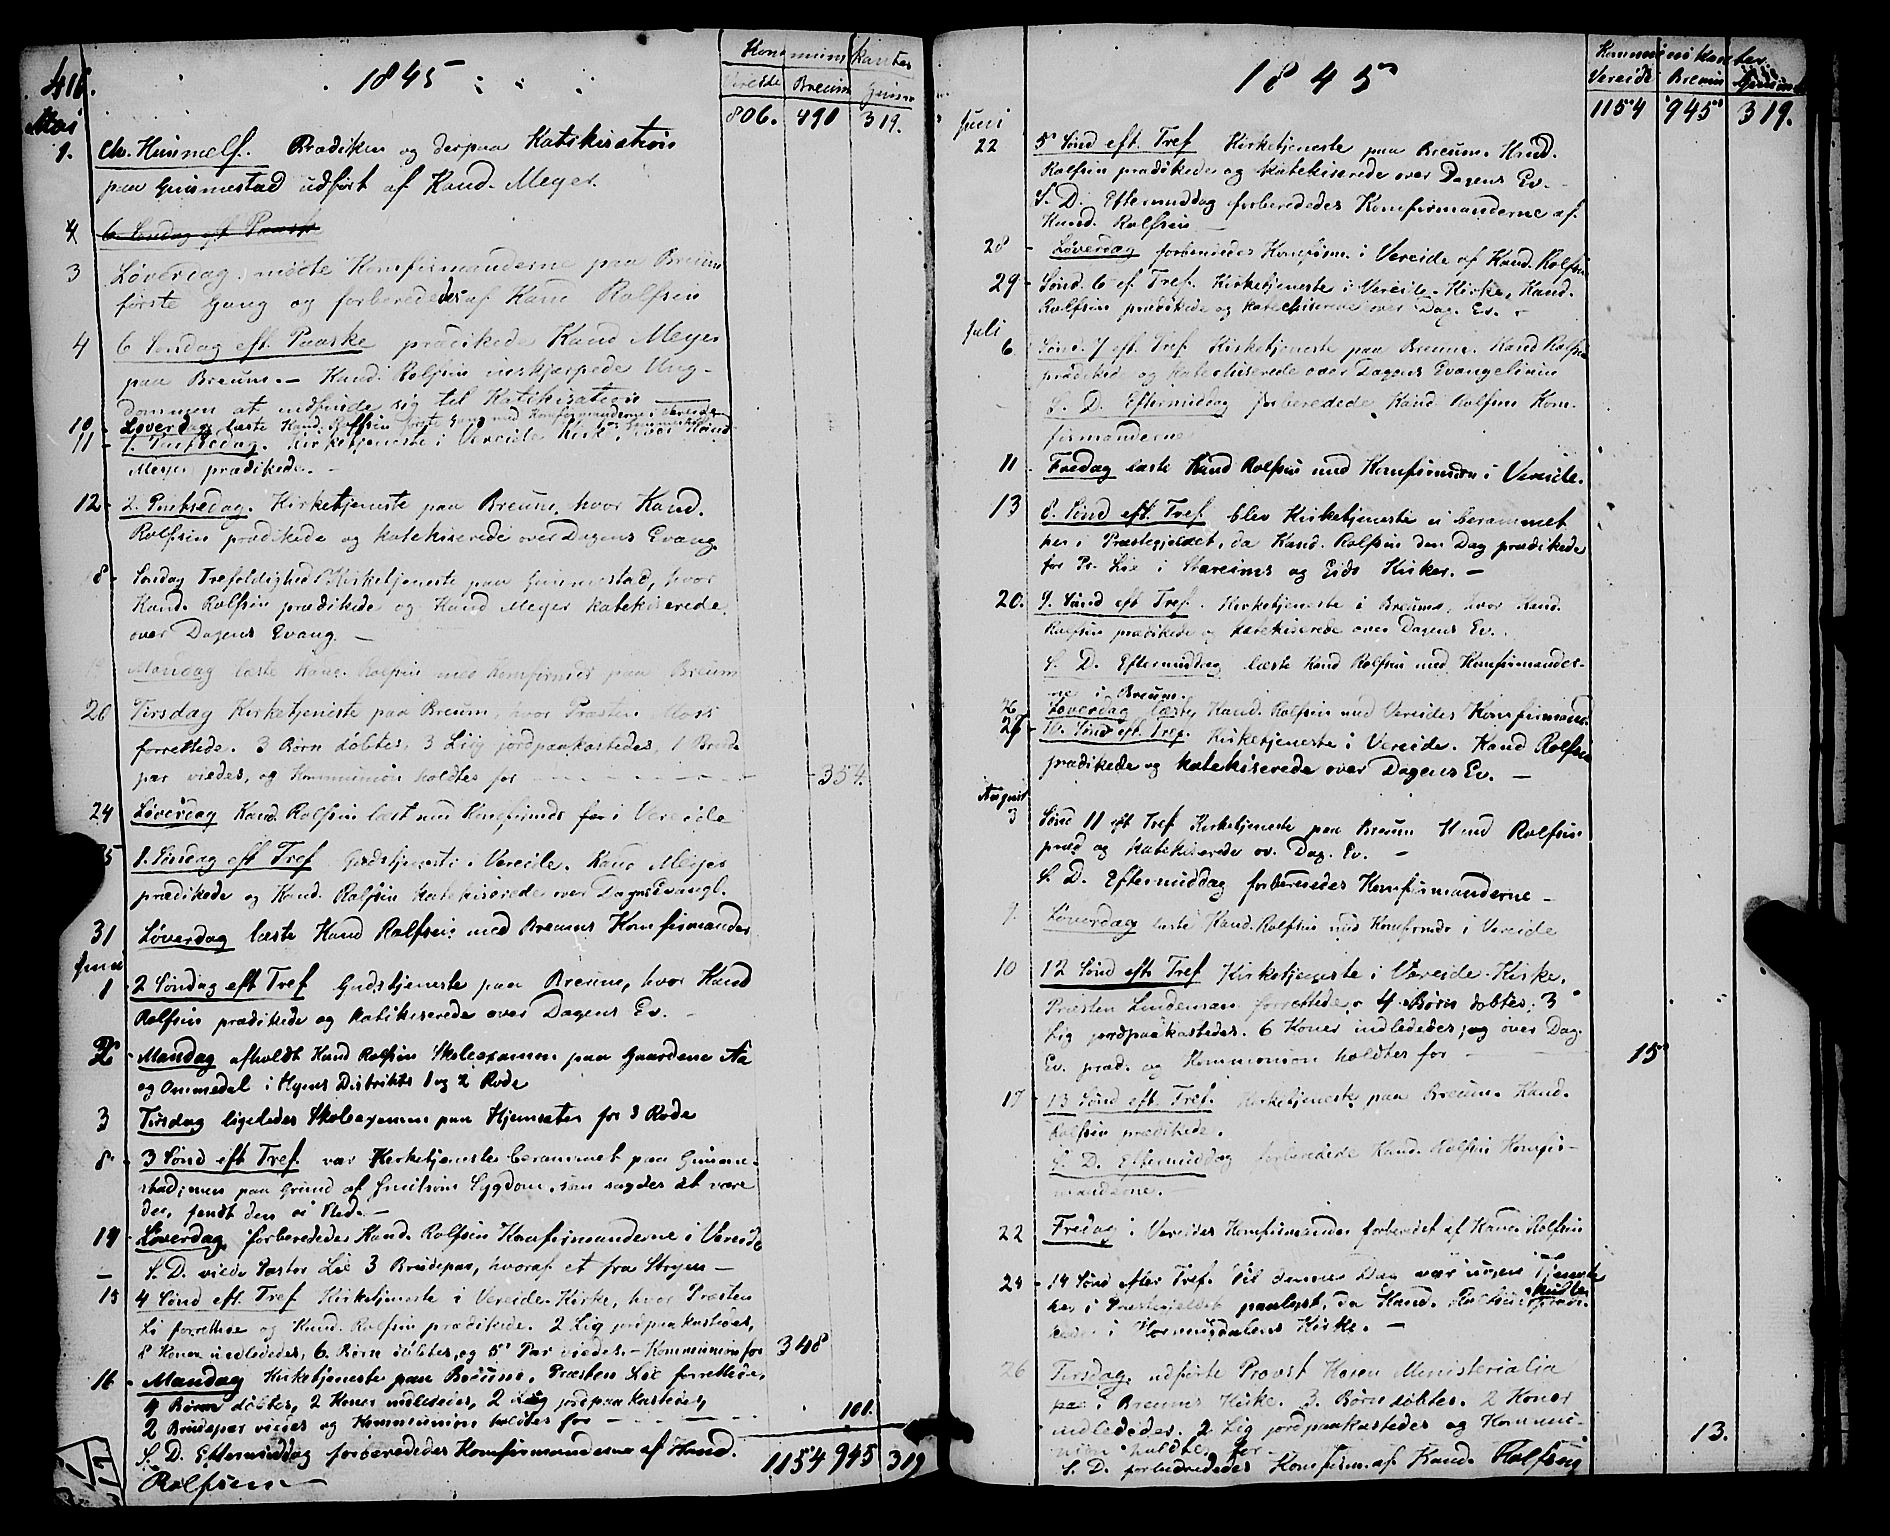 416.
1845
Kommunikanter
Vereide Breum Gimme
806. 491 319.
Mai
1. Chr. Himmelf. Prædiken og derpaa Katikisation
paa Gimmestad udført af Kand. Meyer.
4 6 Søndag eft Paaske
3 Løverdag mødte Konfirmanderne paa Breum
første Gang og forberededes af Kand Rolfsen
4 6 Søndag eft. Paaske prædikede Kand Meyer
paa Breum. — Kand. Rolfsen inskjærpede Ung-
dommen at indfinde sig til Katikisation —
10 - Løverdag læste Kand. Rolfsen første Gang med Konfirmanderne i Vereide
11 - 1. Pintsedag. Kirketjeneste i Vereide Kirk, hvor Kand
Meyer prædikede. -
12 - 2. Pintsedag. Kirketjeneste paa Breum, hvor Kand.
Rolfsen prædikede og katekiserede over Dagens Evang
8 - Søndag Trefoldighed Kirketjeneste paa Gimmestad, hvor
Kand. Rolfsen prædikede og Kand Meyer katekiserede
over Dagens Evang. —
Mandag læste Kand. Rolfsen med Konfirmder paa Breum
20 Tirsdag Kirketjeneste paa Breum, hvor Præsten Moss
forrettede. 3 Børn døbtes, 3 Liig jordpaakastedes, 1 Brude
par viedes, og Kommunion holdtes for - - - 354.
24 Løverdag Kand. Rolfsen læst med Konfirmds i Vereide
25 1. Søndag eft Tref Gudstjeneste i Vereide. Kand Meyer
prædikede og Kand. Rolfsen katekiserede over Dagens Evangl.
31 Løverdag læste Kand Rolfsen med Breums Konfirmander
Juni
1 - 2 Søndag eft Tref Gudstjeneste paa Breum, hvor Kand
Rolfsen prædikede og katikiserede over Dagens Ev. -
2 - Mandag afholdt Kand Rolfsen Skoleexamen paa Gaardene Aa
og Ommedal i Hyens Distrikts 1 og 2 Rode
3 Tirsdag ligeledes Skoleexamen paa Hjemseter for 3 Rode
8 - 3 Sønd eft Tref. var Kirketjeneste berammet paa Gimme-
stad; men paa Grund af Sygdom, som sagdes at være
der, fandt den ei Sted. -
14 - Løverdag forberededes Kand. Rolfsen Konfirmanderne i Vereide
— S. D. viede Pastor Lie 3 Brudepar, hvoraf et fra Stryen —
15 4 Sønd eft. Tref Kirketjeneste i Vereide Kirke, hvor Præsten
Li forrettede og Kand. Rolfsen prædikede. 2 Lig jordpaakastedes,
8 Koner indlededes, 6 Børn døbtes, og 5 Par viedes. - Kommunion for 348
16 - Mandag Kirketjeneste paa Breum. Præsten Lie forrettede,
4 Børn døbtes, 2 Koner indlededes, 2 Lig jordpaakastedes,
2 Brudepar viedes og Kommunion holdtes for - - - 101.
S. D. Eftermiddag forberededes Konfirmanderne af Kand.
Rolfsen —
1154 945 319
1845
Kommunikanter
Vereide Breum Gimme
1154 945 319.
Juni
22 5 Sønd eft. Tref Kirketjeneste paa Breum. Kand.
Rolfsen prædikede og katekiserede over Dagens Ev. -
S. D. Eftermiddag forberededes Konfirmanderne af
Kand. Rolfsen
28 - Løverdag forberededes Konfirm. i Vereide af Kand. Rolfsen
29 - Sønd. 6 ef Tref. Kirketjeneste i Vereide-Kirke, Kand.
Rolfsen prædikede og katekiserede over Dag. Ev. -
Juli
6 Sønd. 7 eft. Tref Kirketjeneste paa Breum. Kand Rolfsen
prædikede og katechiserede over Dagens Evangelium
S. D. Eftermiddag forberedede Kand Rolfsen Kon-
firmanderne
11 - Fredag læste Kand Rolfsen med Konfirmdrn i Vereide.
13 8. Sønd eft. Tref blev Kirketjeneste ei berammet
her i Præstegjeldet, da Kand. Rolfsen den Dag prædikede
for Pr. Lie i Stareims og Eids Kirker. —
20. 9. Sønd eft Tref. Kirketjeneste i Breums, hvor Kand.
Rolfsen prædikede og katekiserede over Dagens Ev.
S. D. Eftermiddag læste Kand Rolfsen med Konfirmander-
ne i Breum.
26 Løverdag læste Kand. Rolfsen med Vereides Konfirmand
27 10. Sønd eft. Tref. Kirketjeneste i Vereide. Kand Rolfsen
prædikede og katekiserede over Dagens Ev. —
August
3 Sønd 11 eft Tref Kirketjeneste paa Breum Kand Rolfsen
præd og katekiserede ov. Dag. Ev. -
S. D. Eftermiddag forberededes Konfirmanderne -
9. Løverdag læste Kand. Rolfsen med Konfirmdr i Vereide
10 12 Sønd eft. Tref Kirketjeneste i Vereide-Kirke.
Præsten Lindeman forrettede. 4 Børn døbtes, 3
Lig jordpaakastedes. 6 Koner indlededes; og over Dag.
Ev. præd. og Kommunion holdtes for - - 15
17 13 Sønd eft. Tref. Kirketjeneste paa Breum. Kand.
Rolfsen prædikede.
S. D. Eftermiddag forberedede Kand. Rolfsen Konfir-
manderne.
22 Fredag i Vereides Konfirmander forberedet af Kand. Rolfsen
24 - 14 Sønd efter Tref. Til denne Dag var ingen Tjeneste
her i Præstegjeldet paalyst, da Kand. Rolfsen prædi-
kede i Hornindalens Kirke. —
26 Tirsdag udførte Provst Koren Ministerialia
i Breums Kirke. 3 Børn døbtes. 2 Koner
indlededes. 2 Lig jordpaakastedes og Kommu-
nion holdtes for - 13.
S. D. forberededes Konfirm. af Kand. Rolfsen